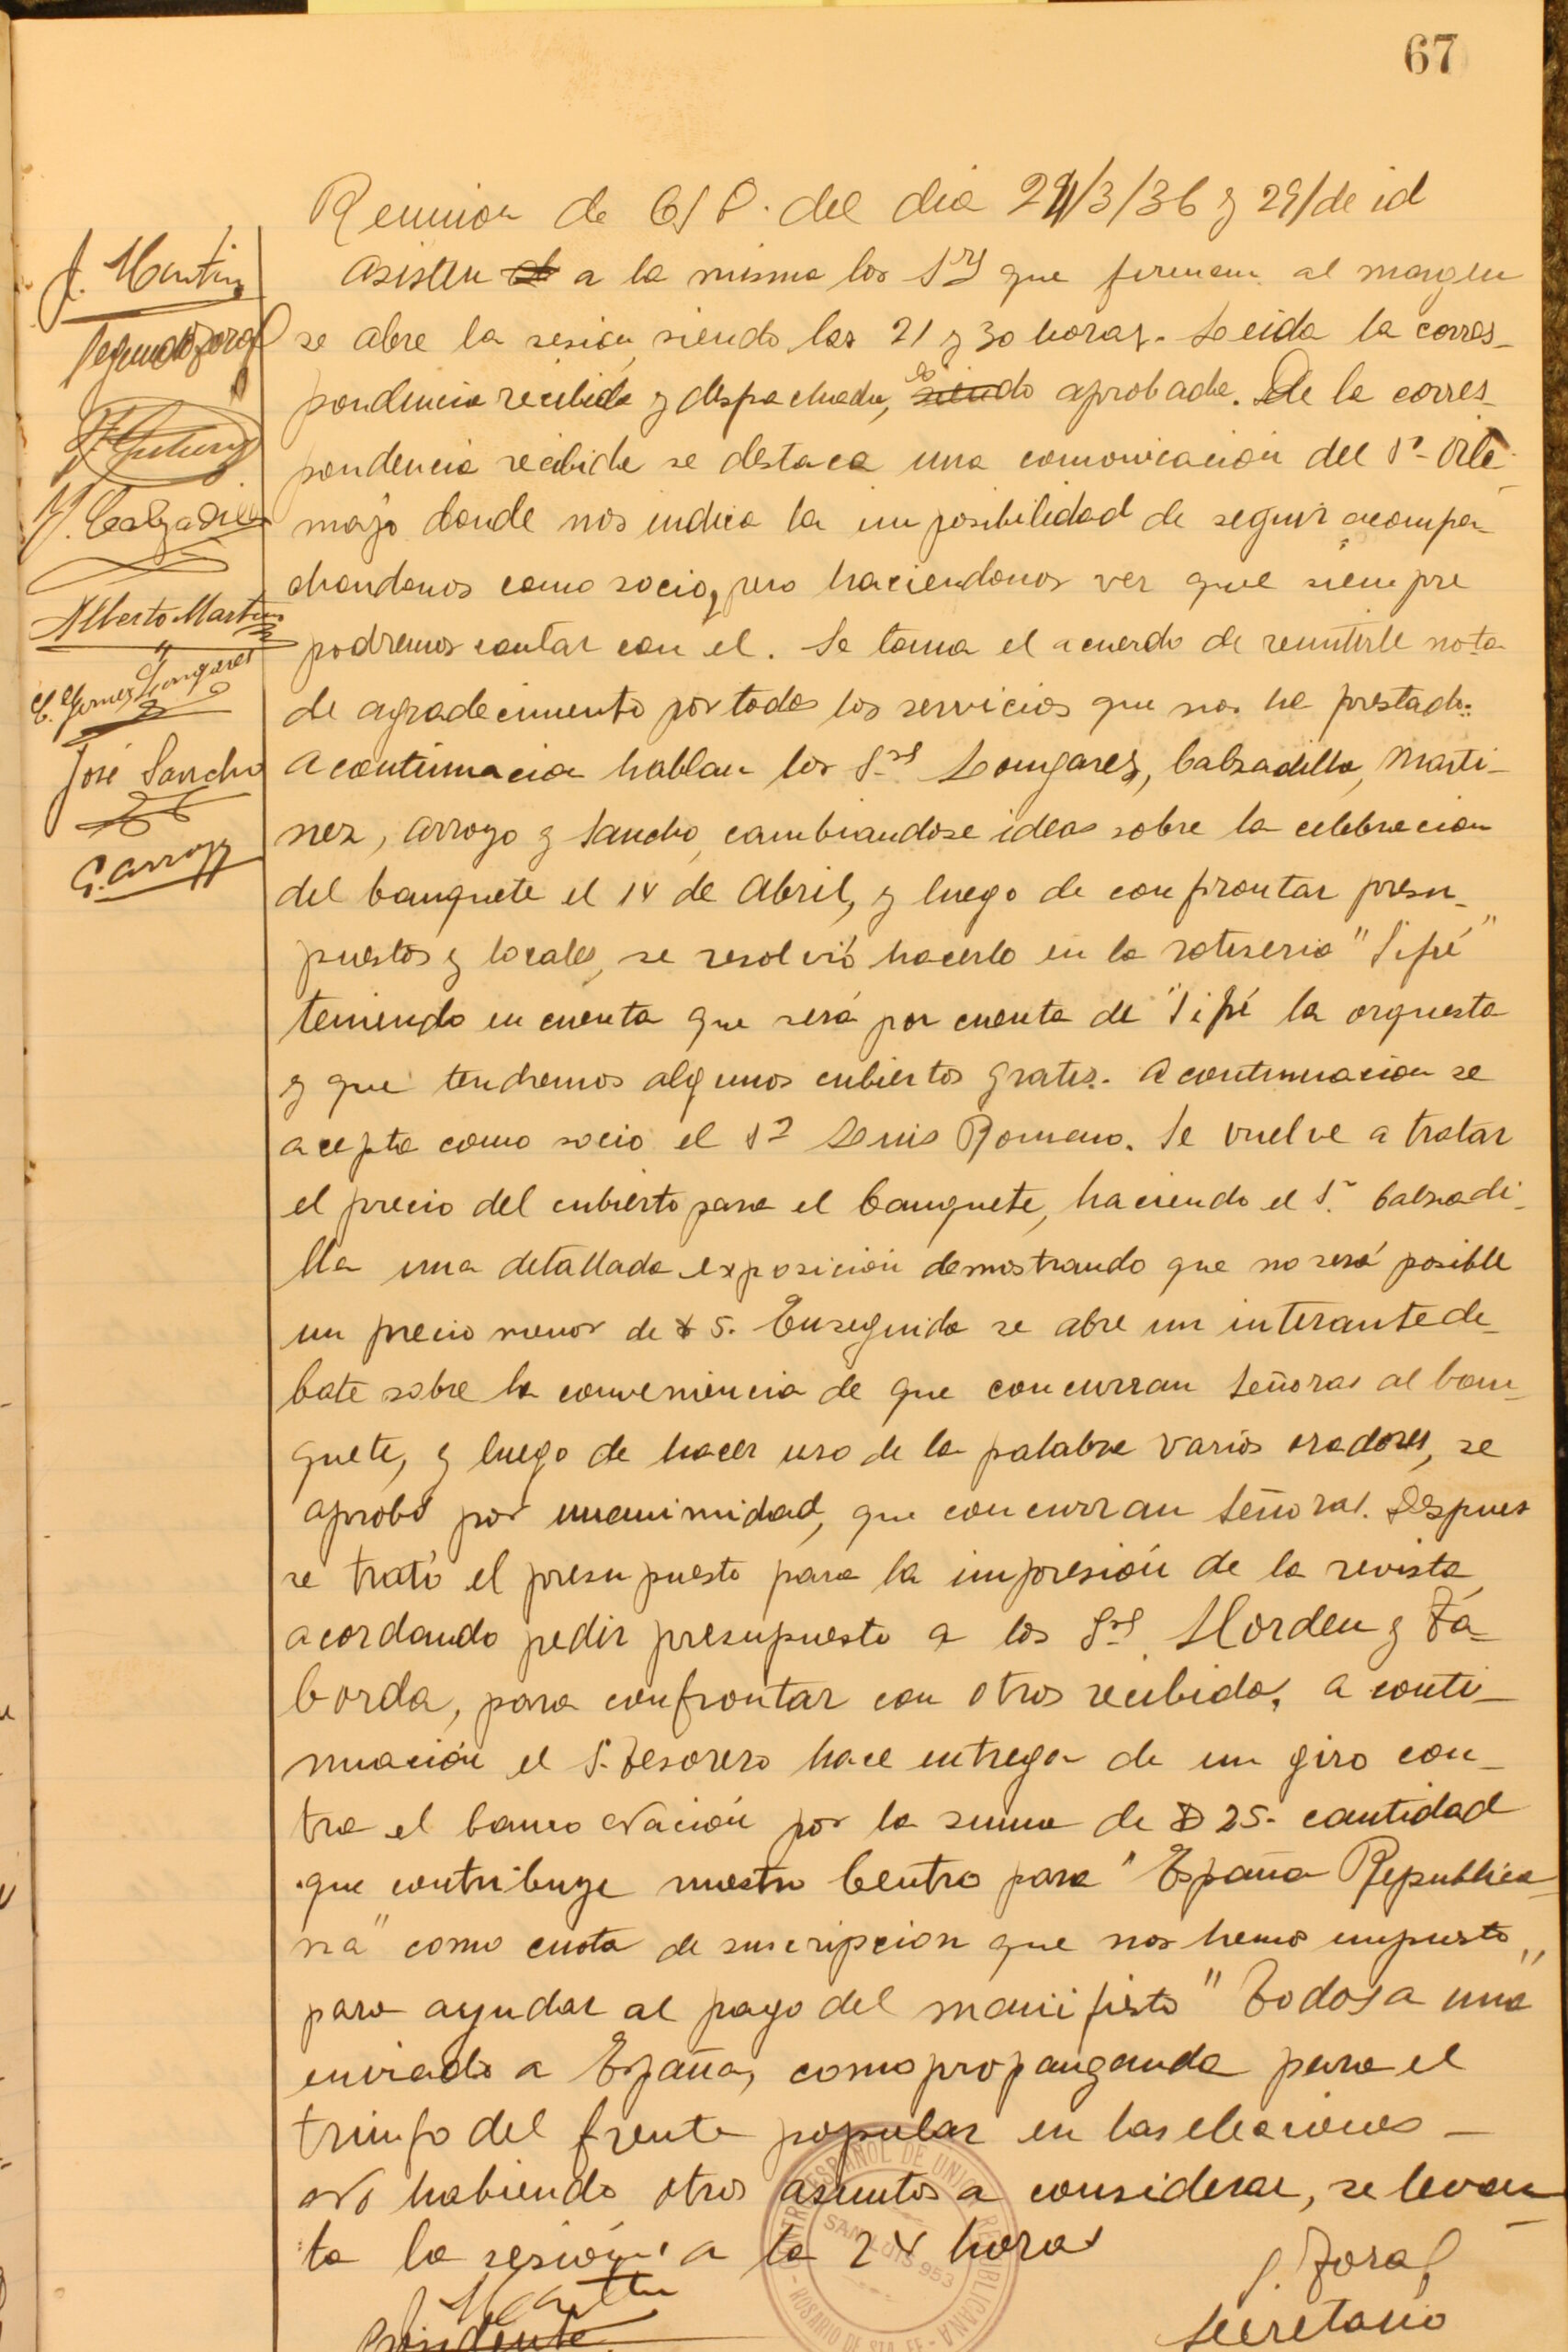 67
Reunion de C/D. del dia 24/3/36 y 29/de id
asisten a la misma los Srs que firman al margen
se abre la sesión siendo las 21 y 30 horas. Leida la corres-
pondencia recibida y despachada, es aprobada. De la corres-
pondencia recibida se destaca una comonicación del Sr.
donde nos indica la imposibilidad de seguir acompa-
ñandonos como socio, pero haciendonos ver que siempre
podremos contar con el. Se toma el acuerdo de remitirle nota
de agradecimiento por todos los servicios que nos ha prestado.
A continuacion hablan los Srs Longares, Calzadilla, Marti-
nez, Arroyo y Sancho, cambiandose ideas sobre la celebracion
del banquete el 14 de Abril, y luego de confrontar presu-
puestos y locales, se resolvió hacerlo en la rotiseria "Sifré"
teniendo en cuenta que será por cuenta de "Sifré la orquesta
y que tendremos algunos cubiertos gratis. A continuacion se
acepta como socio el Sr Luis Romero. Se vuelve a tratar
el precio del cubierto para el banquete, haciendo el Sr. Calzadi-
lla una detallada exposición demostrando que no será posible
un precio menor de $ 5. Enseguida se abre un interante de-
bate sobre la conveniencia de que concurran Señoras al ban-
quete, y luego de hacer uso de la palabra varios oradores, se
aprobó por unanimidad, que concurran Señoras. Despues
se trató el presupuesto para la impresión de la revista,
acordando pedir presupuesto a los Srs. Morden y Ta-
borda, para confrontar con otros recibidos, a conti-
nuación el S. Tesorero hace entrega de un giro con-
tra el banco Nación por la suma de $ 25- cantidad
que contribuye nuestro Centro para "España Republica-
na" como cuota de suscripcion que nos hemos impuesto
para ayudar al pago del manifiesto "Todos a una"
enviado a España, como propanganda para el
triunfo del frente popular en las elecciones -
No habiendo otros asuntos a considerar, se levan-
ta la sesión a la 24 horas
J. Martin
Presidente
S. Zoraf
Secretario
J. Martin
Segundo Zoraf
M. Calzadilla
Alberto Martinez
E. Gomez Longares
José Sancho
G. Arroyo
CENTRO ESPAÑOL DE UNION REPUBLICANA
SAN LUIS 953
ROSARIO DE STA. FE